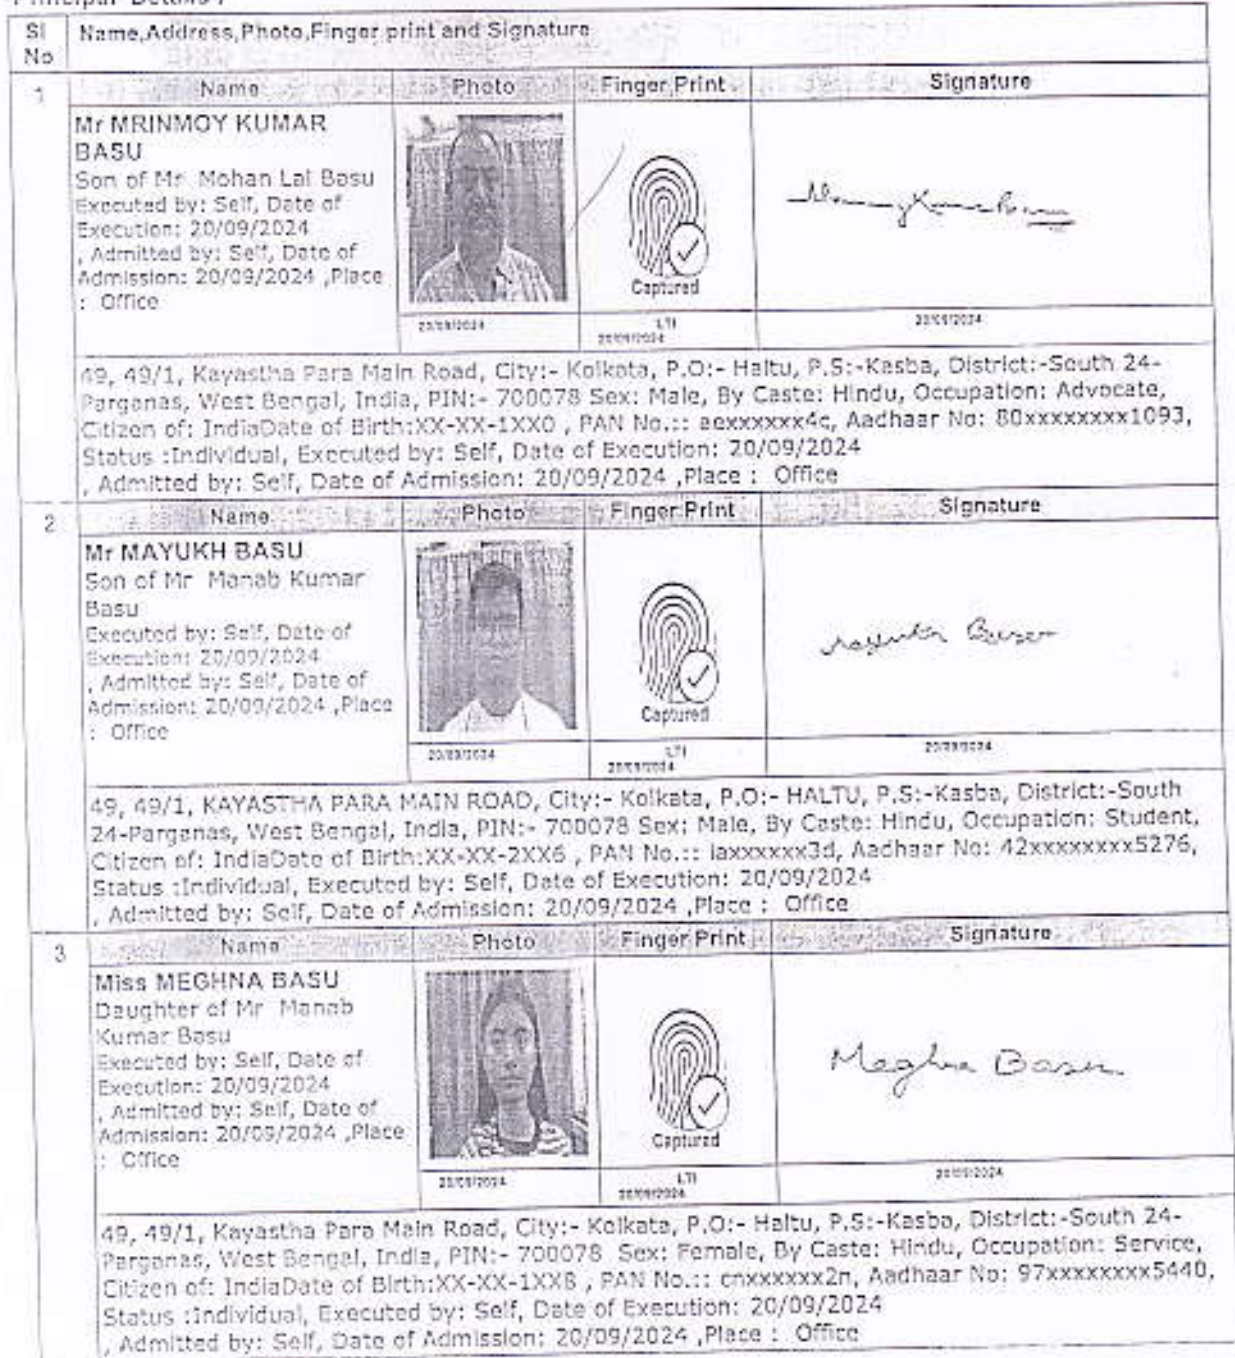 Principal Details :
Sl No
Name,Address,Photo,Finger print and Signature
1
Name Photo Finger Print Signature
Mr MRINMOY KUMAR
BASU
Son of Mr Mohan Lal Basu
Executed by: Self, Date of
Execution: 20/09/2024
, Admitted by: Self, Date of
Admission: 20/09/2024 ,Place
: Office
Captured
20/09/2024
LTI
20/09/2024
20/09/2024
49, 49/1, Kayastha Para Main Road, City:- Kolkata, P.O:- Haltu, P.S:-Kasba, District:-South 24-
Parganas, West Bengal, India, PIN:- 700078 Sex: Male, By Caste: Hindu, Occupation: Advocate,
Citizen of: IndiaDate of Birth:XX-XX-1XX0 , PAN No.:: aexxxxxx4c, Aadhaar No: 80xxxxxxxx1093,
Status :Individual, Executed by: Self, Date of Execution: 20/09/2024
, Admitted by: Self, Date of Admission: 20/09/2024 ,Place : Office
2
Name Photo Finger Print Signature
Mr MAYUKH BASU
Son of Mr Manab Kumar
Basu
Executed by: Self, Date of
Execution: 20/09/2024
, Admitted by: Self, Date of
Admission: 20/09/2024 ,Place
: Office
Captured
Basu
20/09/2024
LTI
20/09/2024
20/09/2024
49, 49/1, KAYASTHA PARA MAIN ROAD, City:- Kolkata, P.O:- HALTU, P.S:-Kasba, District:-South
24-Parganas, West Bengal, India, PIN:- 700078 Sex: Male, By Caste: Hindu, Occupation: Student,
Citizen of: IndiaDate of Birth:XX-XX-2XX6 , PAN No.:: laxxxxxx3d, Aadhaar No: 42xxxxxxxx5276,
Status :Individual, Executed by: Self, Date of Execution: 20/09/2024
, Admitted by: Self, Date of Admission: 20/09/2024 ,Place : Office
3
Name Photo Finger Print Signature
Miss MEGHNA BASU
Daughter of Mr Manab
Kumar Basu
Executed by: Self, Date of
Execution: 20/09/2024
, Admitted by: Self, Date of
Admission: 20/09/2024 ,Place
: Office
Captured
Meghna Basu
20/09/2024
LTI
20/09/2024
20/09/2024
49, 49/1, Kayastha Para Main Road, City:- Kolkata, P.O:- Haltu, P.S:-Kasba, District:-South 24-
Parganas, West Bengal, India, PIN:- 700078 Sex: Female, By Caste: Hindu, Occupation: Service,
Citizen of: IndiaDate of Birth:XX-XX-1XX8 , PAN No.:: cnxxxxxx2n, Aadhaar No: 97xxxxxxxx5440,
Status :Individual, Executed by: Self, Date of Execution: 20/09/2024
, Admitted by: Self, Date of Admission: 20/09/2024 ,Place : Office